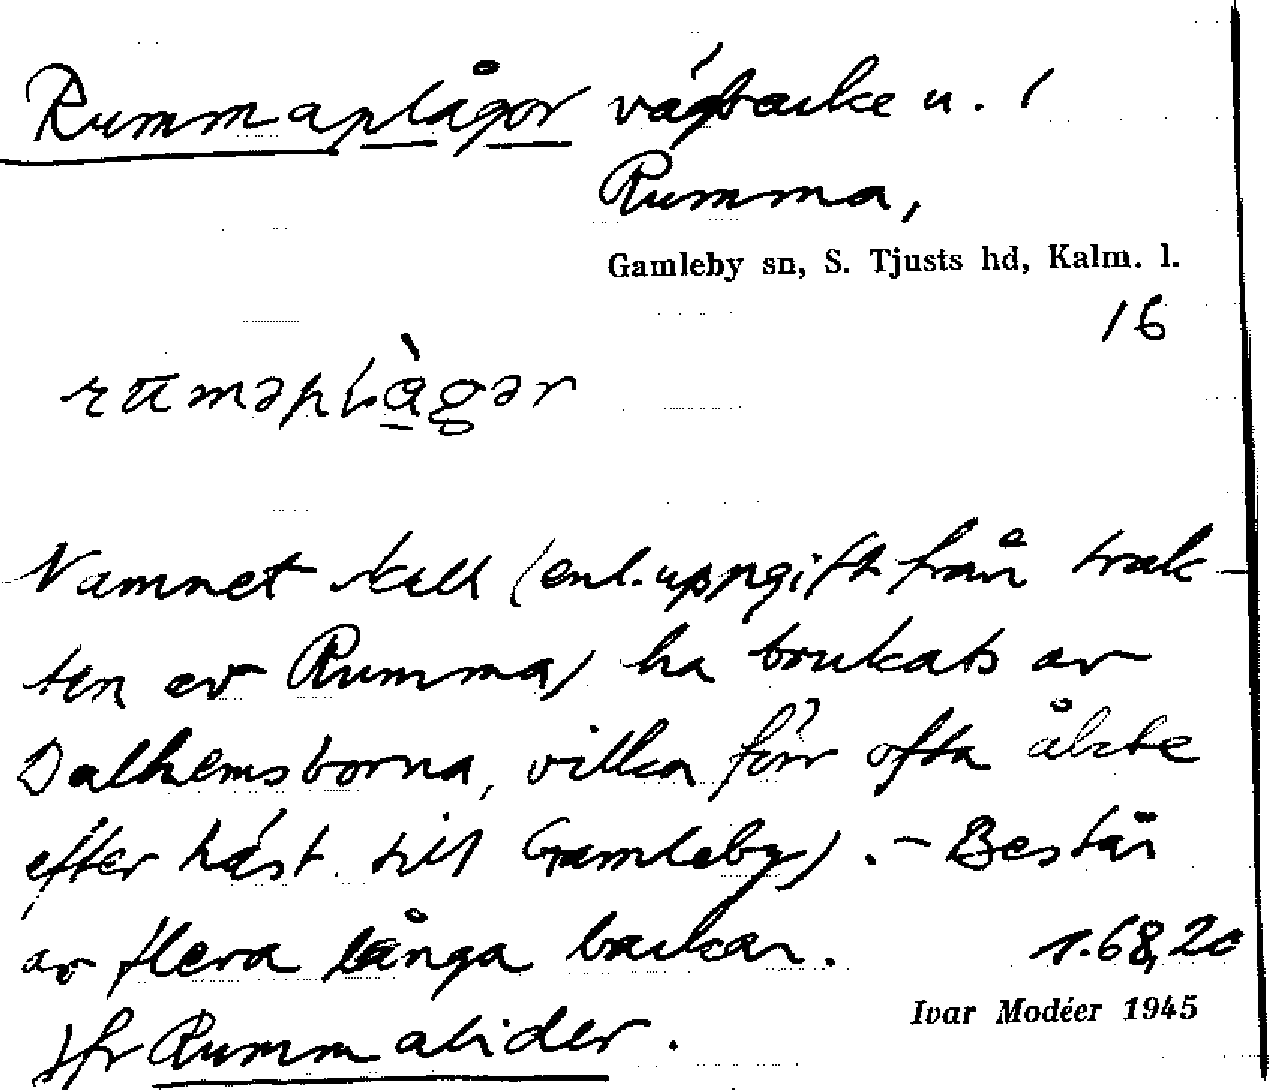 Rummaplågor vägbacke u. i
Rumma,
Gamleby sn, S. Tjusts hd, Kalm. l.
16
Namnet skall (enl. uppgift från trak-
ten av Rumma) ha brukats av
Dalhemsborna, vilka förr ofta åkte
efter häst till Gamleby). - Består
av flera långa backar. s. 68, 20
Ivar Modéer 1945
Jfr Rummalider.